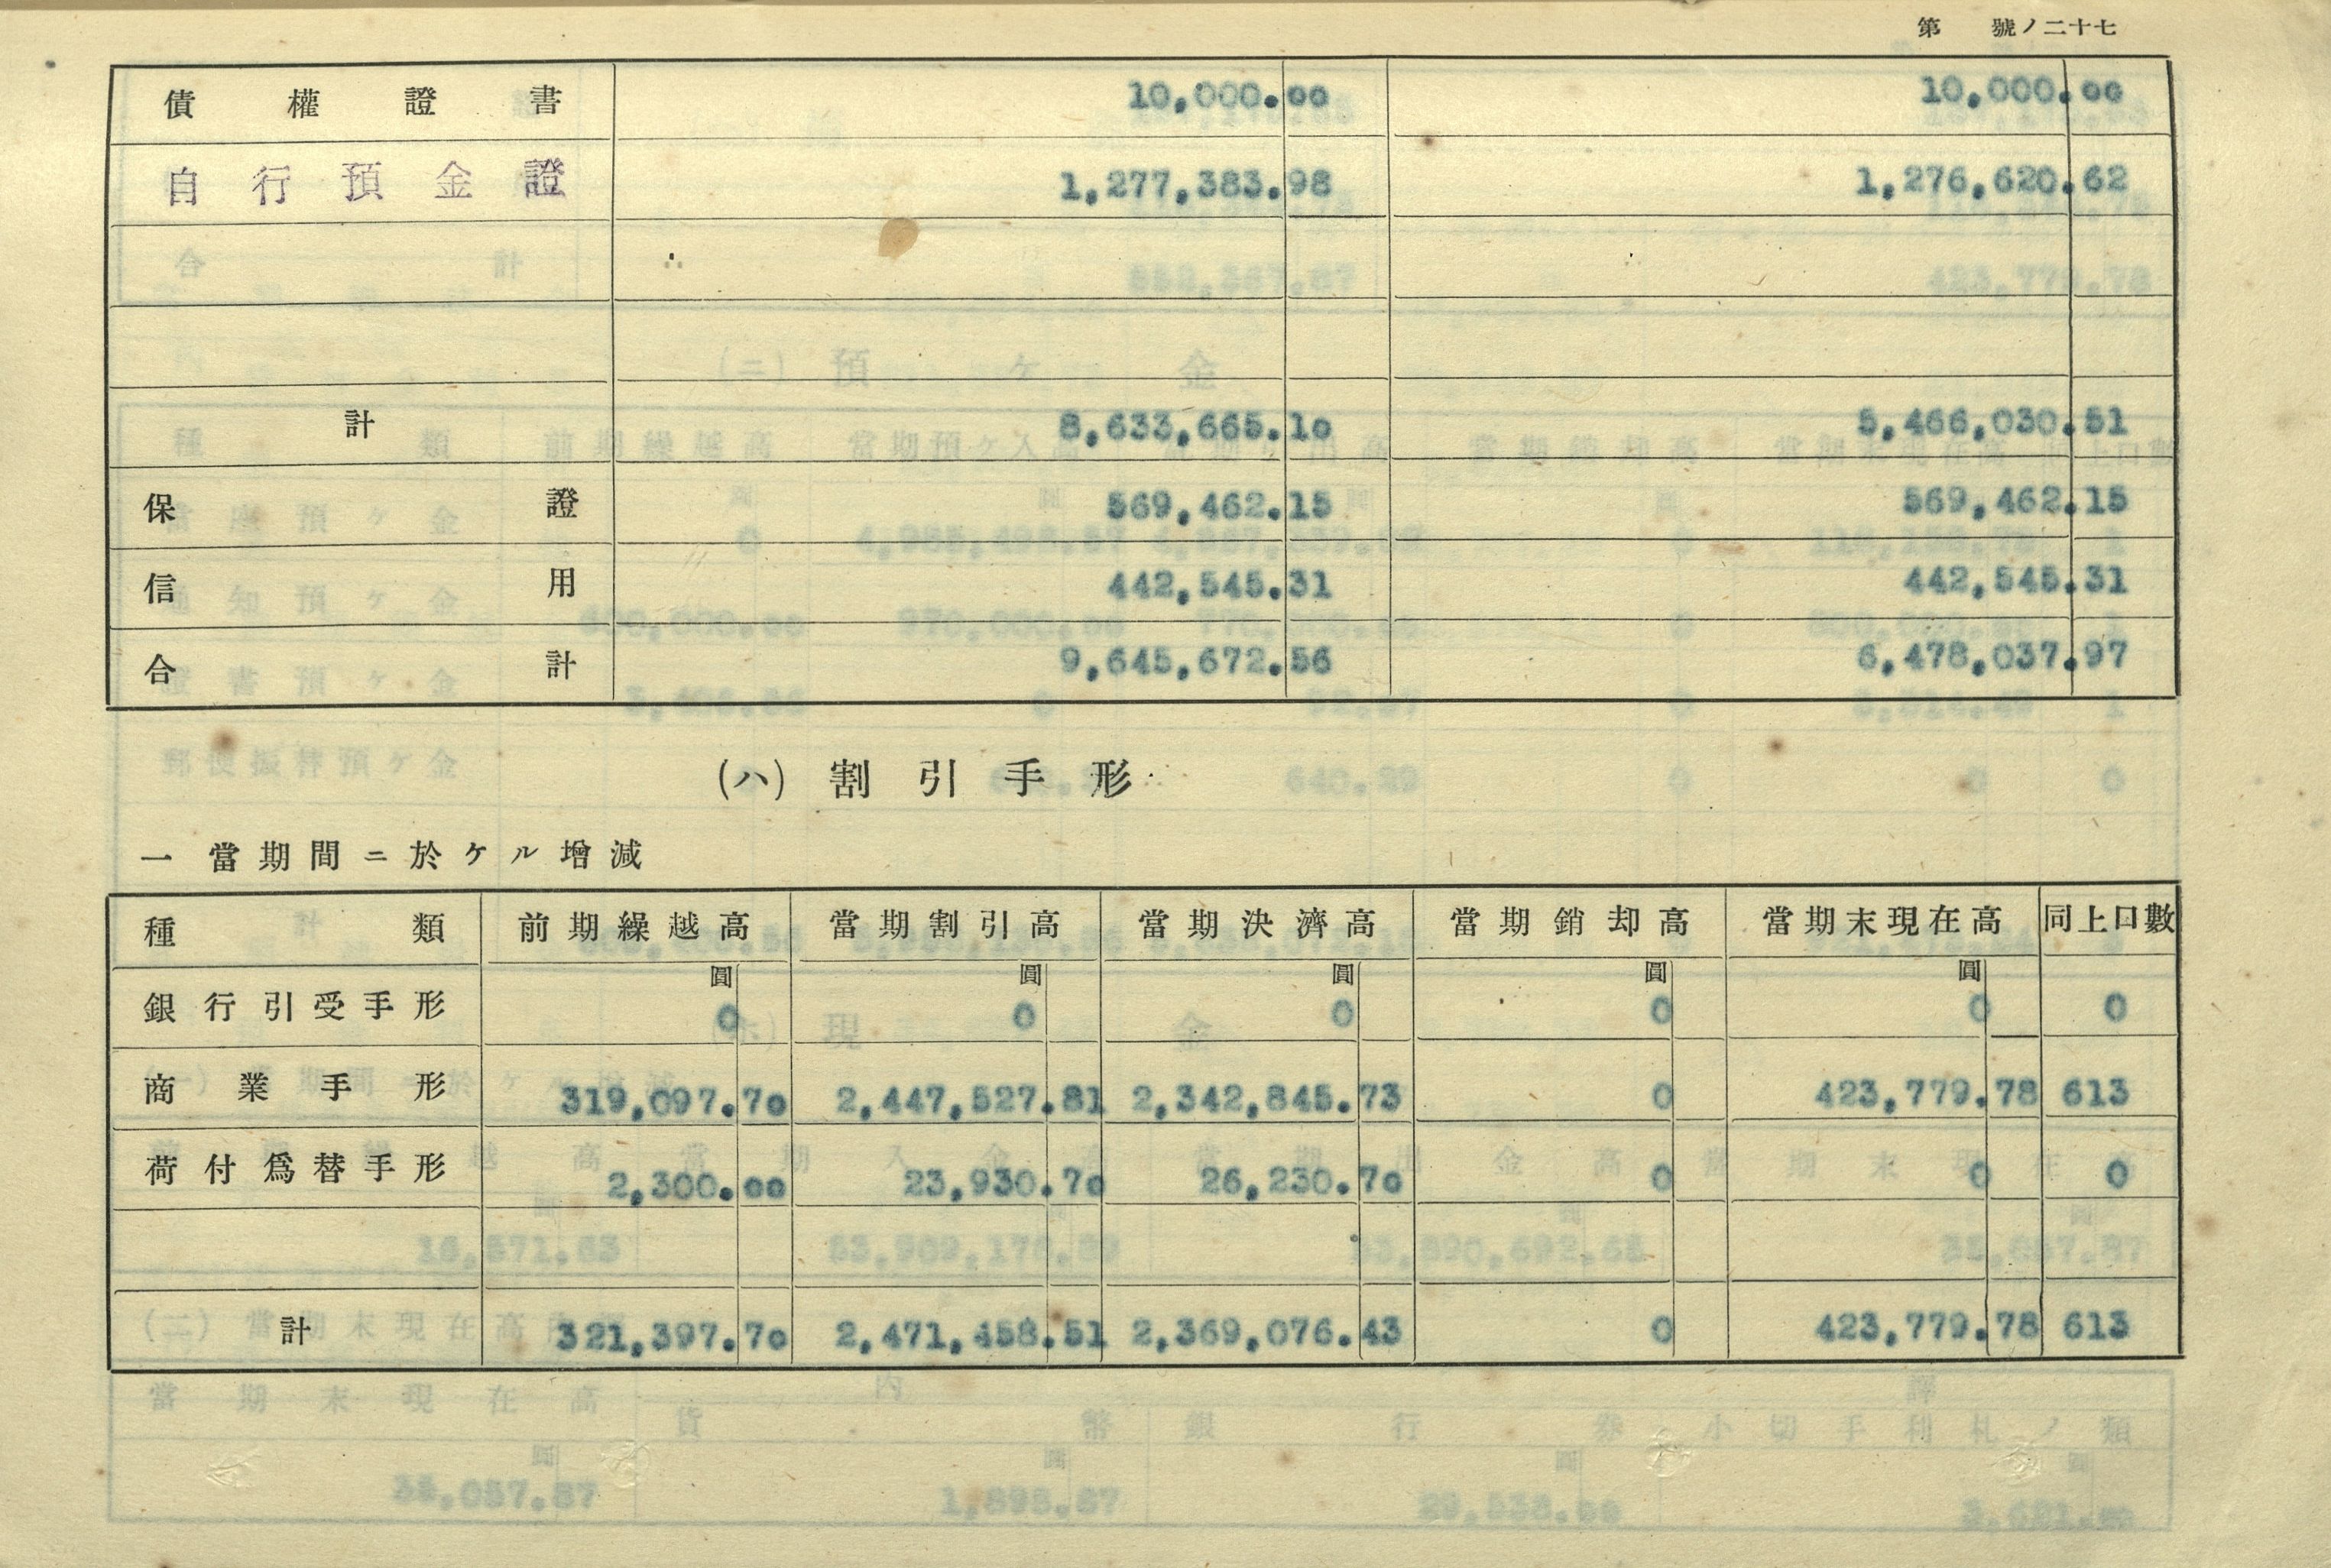 第 號ノ二十七
債權證書 10,000.00 10,000.00
自行預金證 1,277,383.98 1,276,620.62
計 8,633,665.10 5,466,030.51
保證 569,462.15 569,462.15
信用 442,545.31 442,545.31
合計 9,645,672.56 6,478,037.97
(ハ) 割引手形
一 當期間ニ於ケル增減
種類 前期繰越高 當期割引高 當期決濟高 當期銷却高 當期末現在高 同上口數
圓 圓 圓 圓 圓
銀行引受手形 0 0 0 0 0 0
商業手形 319,097.70 2,447,527.81 2,342,845.73 0 423,779.78 613
荷付爲替手形 2,300.00 23,930.70 26,230.70 0 0 0
計 321,397.70 2,471,458.51 2,369,076.43 0 423,779.78 613